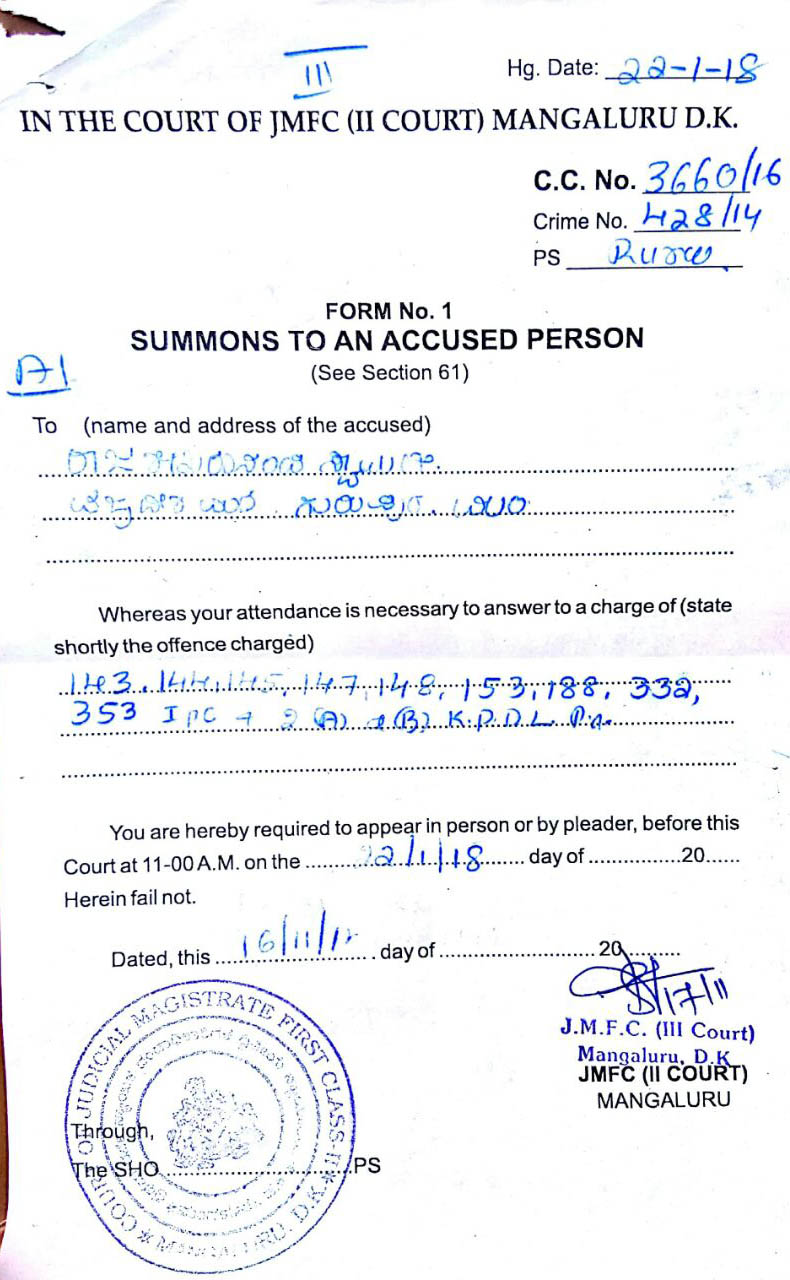 III
Hg. Date: 22-1-18
IN THE COURT OF JMFC (II COURT) MANGALURU D.K.
C.C. No. 3660/16
Crime No. 428/14
PS
FORM No. 1
SUMMONS TO AN ACCUSED PERSON
(See Section 61)
A1
To (name and address of the accused)
Whereas your attendance is necessary to answer to a charge of (state
shortly the offence charged)
143, 144, 145, 147, 148, 153, 188, 332,
353 IPC 2 (A) (B) K.P.D.L.
You are hereby required to appear in person or by pleader, before this
Court at 11-00 A.M. on the 22/1/18 day of 20
Herein fail not.
Dated, this 16/11/ day of 20
17/11
J.M.F.C. (III Court)
Mangaluru, D.K
JMFC (II COURT)
MANGALURU
COURT OF JUDICIAL MAGISTRATE FIRST CLASS-II MANGALURU. D.K
Through,
The SHO PS